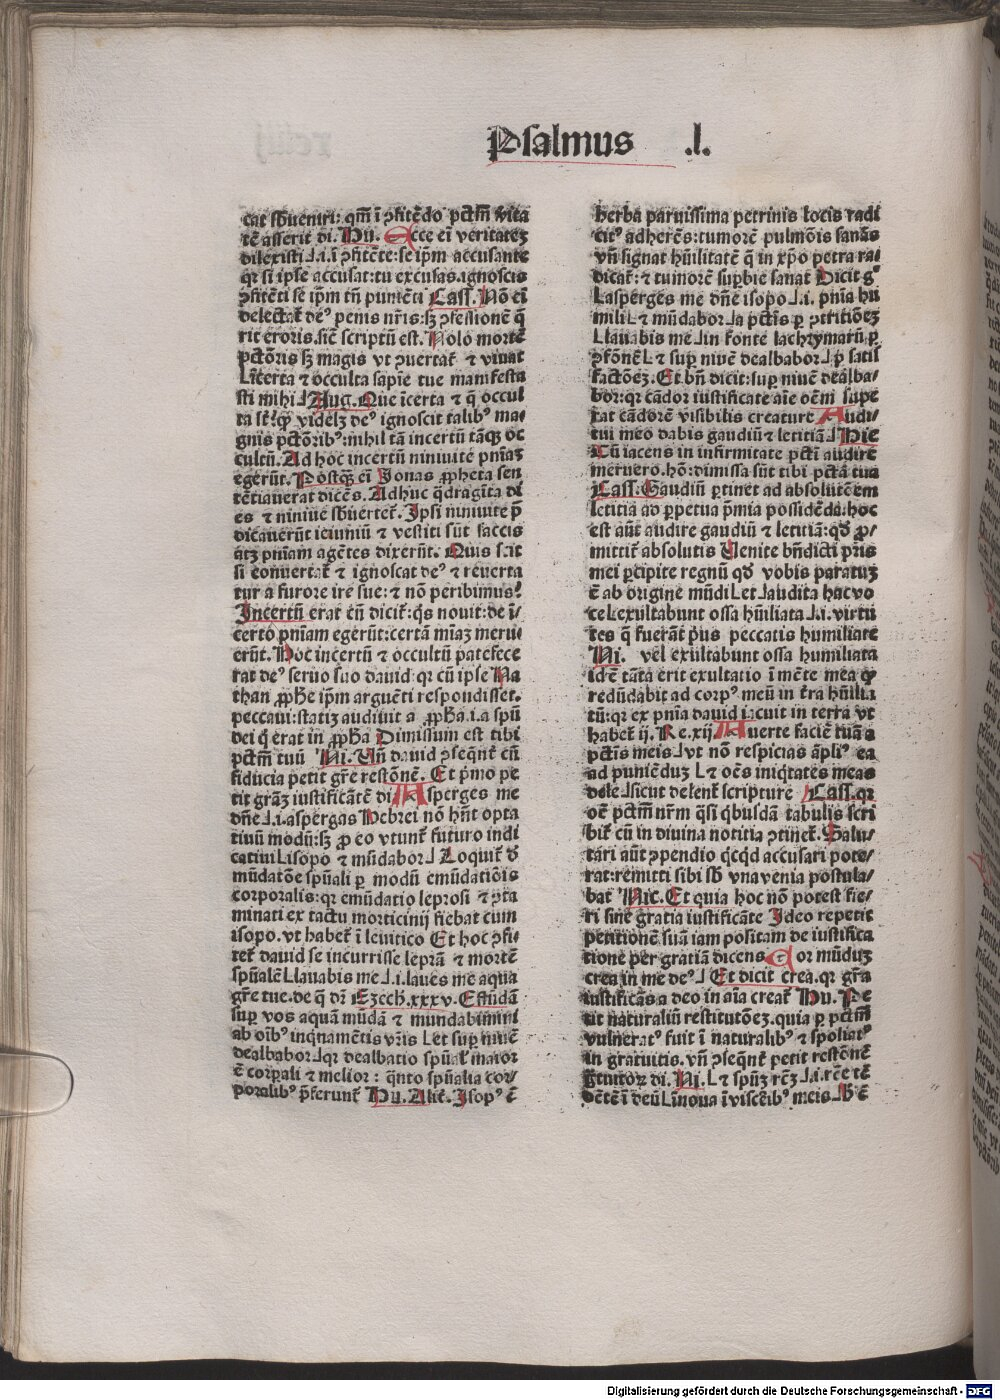 Psalmus .l.
cat sbueniri: qm̄ ī ꝯfitēdo pctm̄ vita
tē asserit di. Hu. Ecce ei veritateꝫ
dilexisti .i. ī ꝯfitēte: se ip̄m accusante
qr si ipse accusat: tu excusas. ignoscis
ꝯfitēti se ip̄m tn̄ puniēti Cass. Nō ei
delectat̄ deꝰ penis nr̄is: sꝫ ꝯfessionē q̄
rit eroris. sic̄ scriptū est. Nolo mortē
pctōris sꝫ magis vt ꝯuertat̄ ⁊ viuat
Līcerta ⁊ occulta sapiē tue manifesta
sti mihi Aug. Que īcerta ⁊ q̄ occul
ta sꝫ videlꝫ deꝰ ignoscit talibꝰ ma-
gnis pctōribꝰ: nihil tā incertū tāqꝫ oc
cultū. Ad hoc incertū niniuite pniaꝫ
egerūt. Postqꝫ ei Jonas ꝓpheta sen
tētiauerat dicēs. Adhuc q̄dragīta di
es ⁊ niniue sbuertet̄. Ipsi niniuite p̄
dicauerūt ieiuniū ⁊ vestiti sūt saccis
atqꝫ pniam agētes dixerūt. Quis s.it
si conuertat̄ ⁊ ignoscat deꝰ ⁊ reuerta
tur a furore ire sue: ⁊ nō peribimus?
Incertū erat cū dicit̄: q̄s nouit: de ī-
certo pn̄iam egerūt: certā miaꝫ merui
erūt. Hoc incertū ⁊ occultū patefece
rat deꝰ seruo suo dauid qr cū ipse Na
than ꝓphe ip̄m arguēti respondisset.
peccaui: statiꝫ audiuit a ꝓpha .i. a spū
dei q̄ erat in ꝓpha Dimissum est tibi
pctm̄ tuū Ni. Vn̄ dauid ꝯseqn̄t̄ cū
fiducia petit gr̄e restōnē. Et p̄mo pe
tit grāꝫ iustificātē di Asperges me
dn̄e .i. aspergas Hebrei nō hn̄t opta
tiuū modū: sꝫ ꝓ eo vtunt̄ futuro indi
catiui Lisopo ⁊ mūdabor Loquit̄ đ
mūdatōe spūali ꝑ modū emūdatiōis
corporalis: qr emūdatio leprosi ⁊ ꝯta
minati ex tactu morticinij fiebat cum
isopo. vt habet̄ ī leuitico Et hoc ꝯfi-
tet̄ dauid se incurrisse leprā ⁊ mortē
spūalē Llauabis me .i. laues me aqua
gr̄e tue. de q̄ dr̄ Ezech. xxxv. Effūdā
suꝑ vos aquā mūdā ⁊ mundabimini
ab oībꝰ inqnamētis vr̄is Let suꝑ niuē
dealbabor qr dealbatio spūal̄ maior
ē corꝑali ⁊ melior: qnto spūalia cor-
poralibꝰ p̄ferunt̄ Hu. Alit̄. Isopꝰ ē
herba paruissima petrinis locis radi
citꝰ adherēs: tumorē pulmōis sanās
vn̄ signat hūilitatē q̄ in xp̄o petra ra-
dicat̄: ⁊ tumorē suꝑbie sanat Dicit gͦ
Lasperges me dn̄e isopo .i. pn̄ia hu
mili L ⁊ mūdabor a pctis ꝑ ꝯtritiōeꝫ
Llauabis me in fonte lachrymarū ꝑ
ꝯfōnē L ⁊ suꝑ niuē dealbabor ꝑ satis
factōeꝫ. Et bn̄ dicit: suꝑ niuē dealba-
bor: qr cādor iustificate aīe oēm supe
rat cādorē visibilis creature Audi-
tui meo dabis gaudiū ⁊ letitiā Hie
Cū iacens in infirmitate pcti audire
meruero. hō: dimissa sūt tibi pctā tua
Cass. Gaudiū ꝑtinet ad absolutēem
letitia ad ꝑpetua p̄mia possidēda: hoc
est aūt audire gaudiū ⁊ letitiā: qđ ꝓ-
mittit̄ absolutis Venite bn̄dicti pr̄is
mei ꝑcipite regnū qđ vobis paratuꝫ
ē ab origine mūdi Let audita hac vo
ce Lexultabunt ossa hūiliata .i. virtu
tes q̄ fuerāt p̄us peccatis humiliate
Ni. vel exultabunt ossa humiliata
id ē tāta erit exultatio ī mēte mea qꝙ
redūdabit ad corpꝰ meū in terra hūilia
tū: qr ex pn̄ia dauid iacuit in terra vt
habet̄ ij. Re. xij. Auerte faciē tuā a
pctis meis vt nō respicias āpliꝰ ea
ad puniēduꝫ L ⁊ oēs iniqtates meas
dele sicut delent̄ scripture Cass. qr
oē pctm̄ nr̄m qsi qbusdā tabulis scri
bit̄ cū in diuina notitia ꝯtinet̄. Salu-
tari aūt ꝯpendio qcqd accusari pote-
rat: remitti sibi sb vna venia postula-
bat Nic. Et quia hoc nō potest fie-
ri sine gratia iustificāte Ideo repetit
petitionē suā iam positam de iustifica
tione per gratiā dicens Cor mūduꝫ
crea in me deꝰ Et dicit crea. qr gr̄a
iustificās a deo in aīa creat̄ Hu. Pe
tit naturaliū restitutōeꝫ. quia ꝑ pctm̄
vulneratꝰ fuit ī naturalibꝰ ⁊ spoliatꝰ
in gratuitis. vn̄ ꝯseqn̄t̄ petit restōnē
gtuitoꝝ di. Ni. L ⁊ spūꝫ rēꝫ .i. rēe tē
dētē ī deū Līnoua ī viscēibꝰ meis h ē
Digitalisierung gefördert durch die Deutsche Forschungsgemeinschaft - DFG